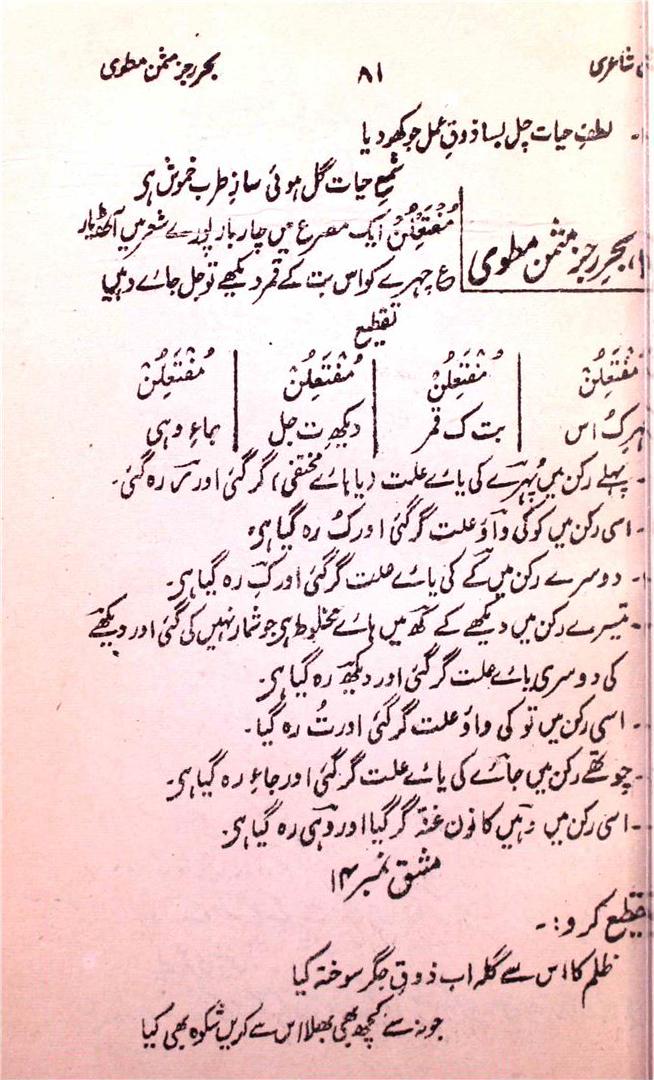 شاعری ۸۱ بحر رجز مثمن مطوی
لطفِ حیات چل بسا ذوقِ عمل جو کھو دیا
شمعِ حیات گل ہوئی سازِ طرب خموش ہی
بحر رجز مثمن مطوی
مُفْتَعِلُنْ ایک مصرع میں چار بار پورے شعر میں آٹھ بار
ع چہرے کو اس بت کے قمر دیکھے تو جل جائے وہیں
تقطیع
مُفْتَعِلُنْ مُفْتَعِلُنْ مُفْتَعِلُنْ مُفْتَعِلُنْ
ہرِ کُ اس بت کِ قمر دیکھ تُ جل جاءِ وہی
پہلے رکن میں چہرے کی یائے علت (یا ہائے مختفی) گر گئی اور رہ گئی۔
اسی رکن میں کو کی واؤ علت گر گئی اور کُ رہ گیا ہی۔
دوسرے رکن میں کے کی یائے علت گر گئی اور کِ رہ گیا ہی۔
تیسرے رکن میں دیکھے کے کھ میں ہائے مخلوط ہی جو شمار نہیں کی گئی اور دیکھے
کی دوسری یائے علت گر گئی اور دیکھ رہ گیا ہی۔
اسی رکن میں تو کی واؤ علت گر گئی اور تُ رہ گیا۔
چوتھے رکن میں جائے کی یائے علت گر گئی اور جاءِ رہ گیا ہی۔
اسی رکن میں وہیں کا نون غنہ گر گیا اور وہی رہ گیا ہی۔
مشق نمبر ۱۴
تقطیع کرو:۔
ظلم کا اس سے گلہ اب ذوقِ جگر سوختہ کیا
جو نہ سنے کچھ بھی بھلا اس سے کریں شکوہ بھی کیا